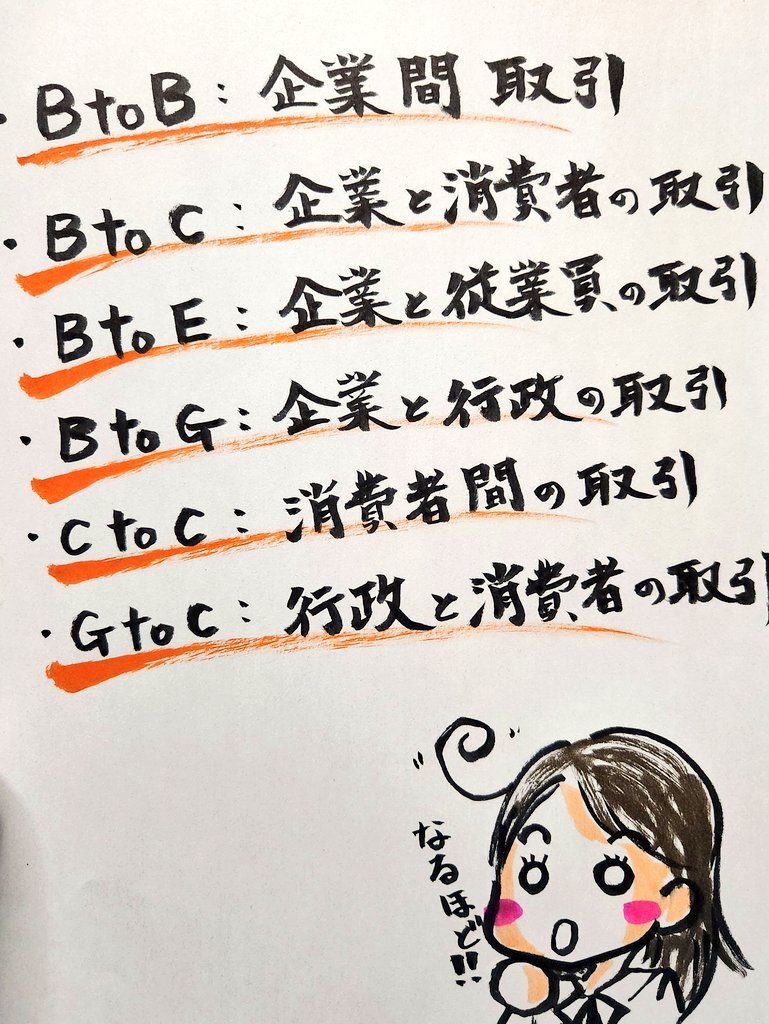 ・BtoB：企業間取引
・BtoC：企業と消費者の取引
・BtoE：企業と従業員の取引
・BtoG：企業と行政の取引
・CtoC：消費者間の取引
・GtoC：行政と消費者の取引
なるほど!!